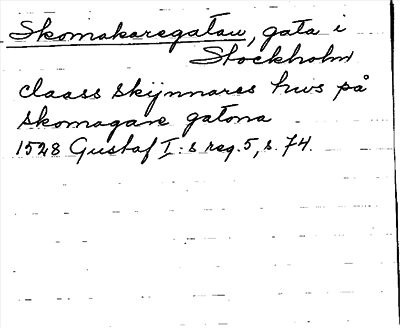 Skomakaregatan, gata i
Stockholm
claass skijnnares hws på
skomagare gatona
1528 Gustaf I:s reg. 5, s. 74.